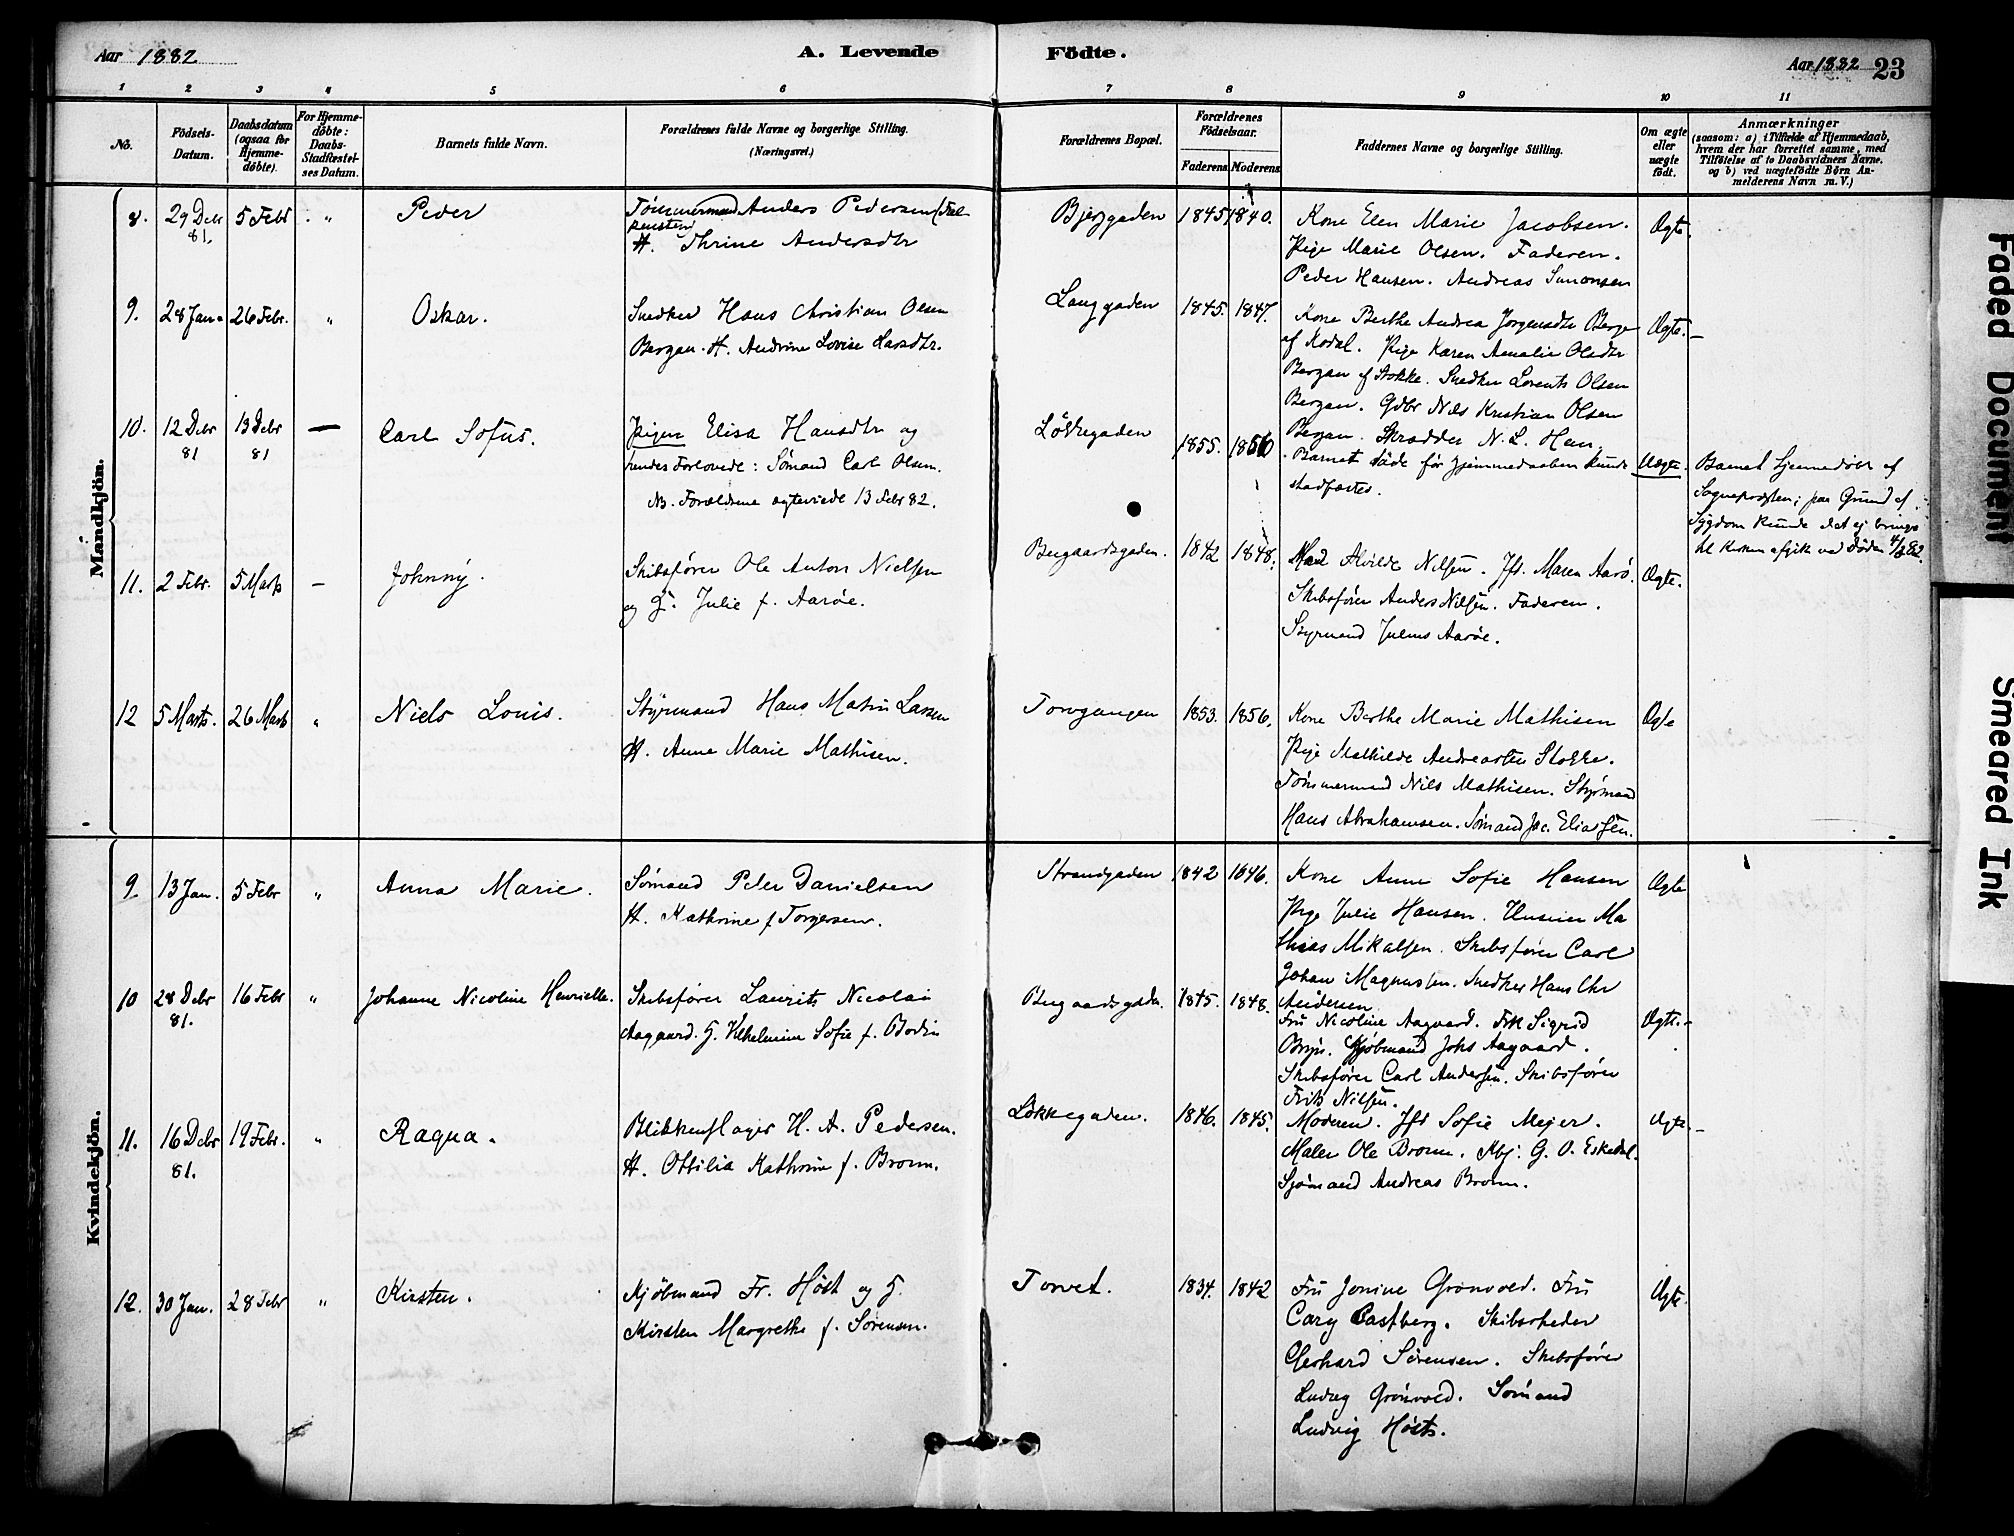 Aar 1882
A. Levende Födte.
Aar 1882 23
1 2 3 4 5 6 7 8 9 10 11
No.
Födsels-Datum.
Daabsdatum (ogsaa for Hjemme-döbte).
For Hjemme-döbte: Daabs-Stadfæstel-ses Datum.
Barnets fulde Navn.
Forældrenes fulde Navne og borgerlige Stilling. (Næringsvei.)
Forældrenes Bopæl.
Forældrenes Födselsaar.
Faderens Moderens
Faddernes Navne og borgerlige Stilling.
Om ægte eller uægte födt.
Anmærkninger
(saasom: a) i Tilfælde af Hjemmedaab,
hvem der har forrettet samme, med
Tilföielse af to Daabsvidners Navne.
og b) ved uægtefödte Börn An-
melderens Navn m. V.)
Mandkjön.
8. 29 Debr 81. 5 Febr " Peder
Tömmermand Anders Pedersen
H. Thrine Andersdtr
Bjerggaden 1845 1840.
Kone Elen Marie Jacobsen.
Pige Marie Olsen. Faderen.
Peder Hansen. Andreas Simonsen
Ægte.
9. 28 Jan. 26 Febr. " Oskar.
Snedker Hans Christian Olsen
Bergan. H. Andrine Lovise Larsdtr.
Langgaden 1845. 1847.
Kone Berthe Andrea Jörgensdtr Berge
af Kodal. Pige Karen Amalie Olsdtr
Bergan af Stokke. Snedker Lorents Olsen
Bergan. Gdbr Nils Kristian Olsen
Bergan. Skrædder N. L. Hen.
Ægte.
10. 12 Debr 81 13 Debr 81 — Carl Sofus.
Pigen Elisa Hansdtr og
hendes Forlovede: Sömand Carl Olsen.
NB. Forældrene ægteviede 13 Febr 82.
Lökkegaden 1855. 1856
Barnet döde för Hjemmedaaben kunde
stadfæstes.
Uægte.
Barnet hjemmedöbt af
Sogneprosten; paa Grund af
Sygdom kunde det ej bringes
til Kirken afgik ved döden 4/2 82.
11. 2 Febr. 5 Marts — Johnny.
Skibsförer Ole Anton Nielsen
og H. Julie f. Aaröe.
Bugaardsgaden. 1842 1848.
Mad Alvilde Nilsen. Jfr. Maren Aarö.
Skibsförer Anders Nilsen. Faderen.
Styrmand Julius Aaröe.
Ægte.
12 5 Marts. 26 Marts " Niels Louis.
Styrmand Hans Matin Larsen
H. Anne Marie Mathisen.
Torvgangen 1853. 1856.
Kone Berthe Marie Mathisen
Pige Mathilde Andreasen Stokke.
Tömmermand Nils Mathisen. Styrmand
Hans Abrahamsen. Sömand Jac. Eliassen.
Ægte
Kvindekjön.
9 13 Jan. 5 Febr " Anna Marie.
Sömand Peter Danielsen
H. Kathrine f. Torgersen.
Strandgaden 1842 1846.
Kone Anne Sofie Hansen
Pige Julie Hansen. Huseier Ma
thias Mikalsen. Skibsförer Carl
Johan Magnussen. Snedker Hans Chr
Andersen
Ægte
10 28 Debr 81. 16 Febr " Johanne Nicoline Henriette.
Skibsförer Laurits Nicolai
Aagaard. H. Vilhelmine Sofie f. Bodin
Bugaardsgaden. 1845. 1848.
Fru Nicoline Aagaard. Frk Sigrid
Bryn. Kjöbmand Johs Aagaard.
Skibsförer Carl Andersen. Skibsförer
Frits Nilsen.
Ægte.
11. 16 Debr 81. 19 Febr. " Ragna.
Blikkenslager H. A. Pedersen.
H. Ottilia Kathrine f. Broun.
Lökkegaden. 1846. 1845.
Moderen. Jfr Sofie Mejer.
Maler Ole Broun. Kbj. G. O. Eskedal.
Sjömand Andreas Broun.
Ægte.
12. 30 Jan. 28 Febr " Kirsten.
Kjöbmand Fr. Höst og H.
Kirsten Margrethe f. Sörensen.
Torvet. 1834. 1842
Fru Jonine Grönvold. Fru
Cary Castberg. Skibsrheder
Gerhard Sörensen. Skibsförer
Ludvig Grönvold. Sömand
Ludvig Höst.
Ægte.
Faded Document
Smeared Ink